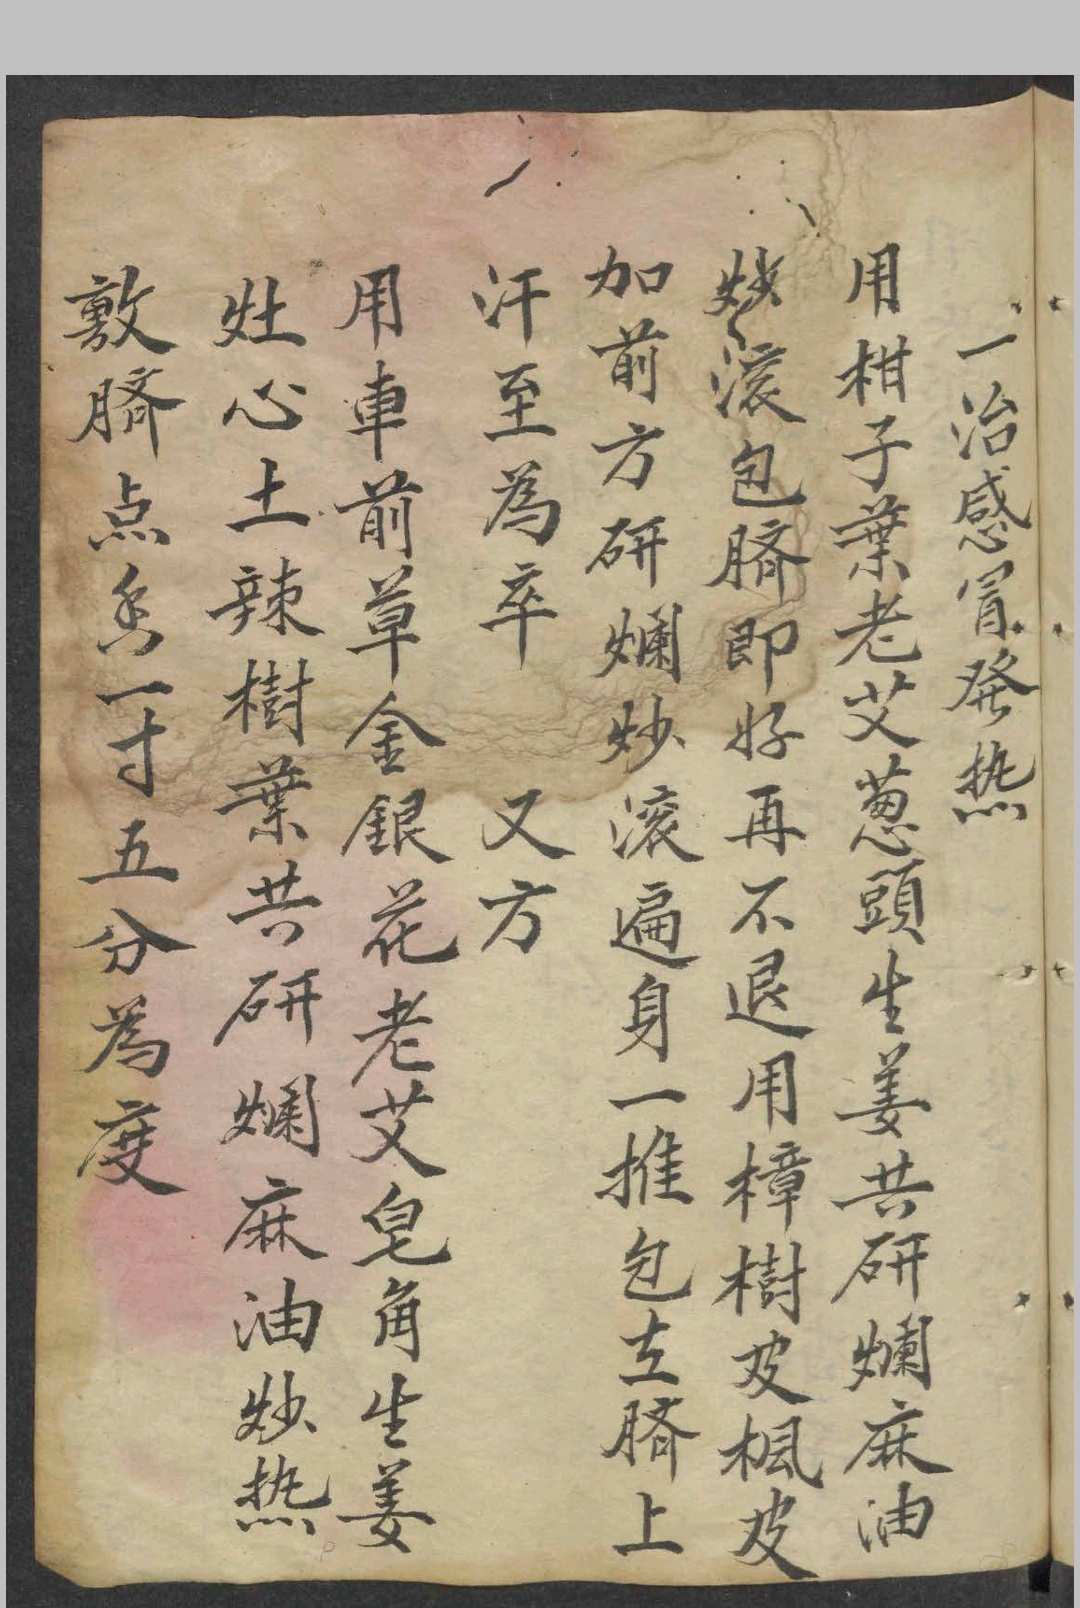 一治感冒發热
用柑子葉老艾蔥頭生姜共研爛麻油
炒滚包臍即好再不退用樟樹皮楓皮
加前方研爛炒滚遍身一推包在臍上
汗至為卒　又方
用車前草金銀花老艾皂角生姜
灶心土辣樹葉共研爛麻油炒热
敷臍点香一寸五分為度